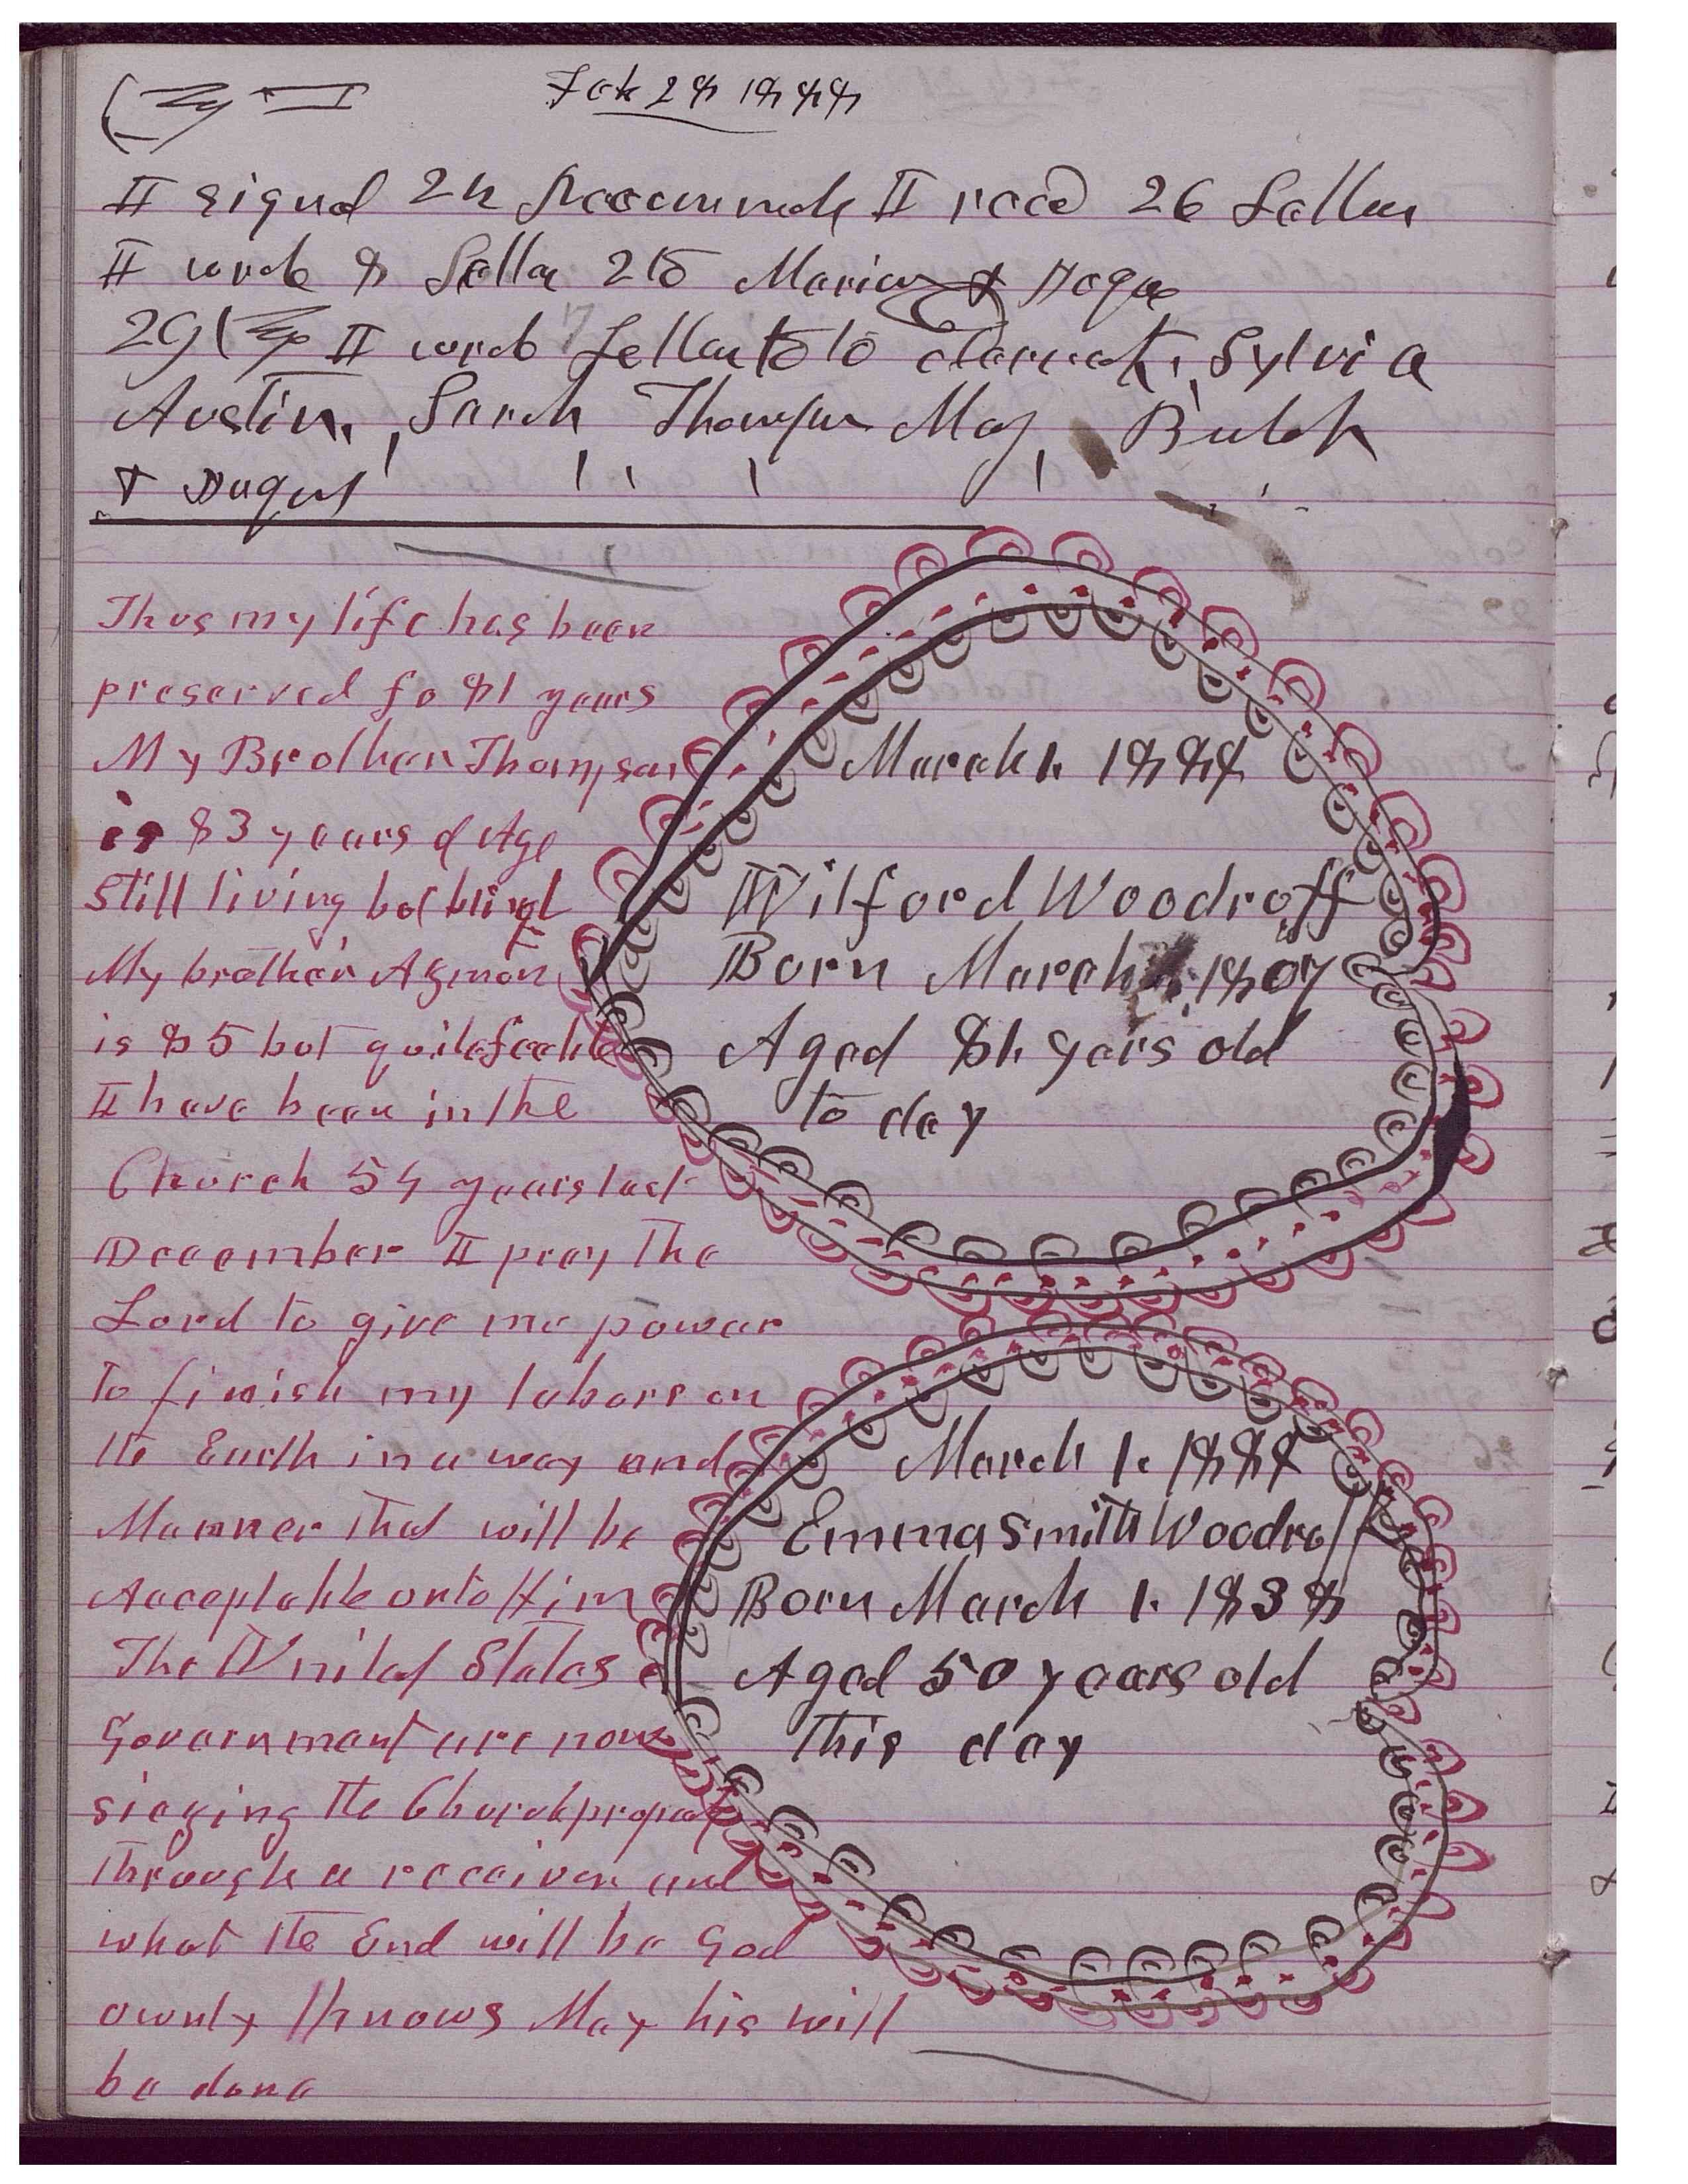 Feb 28 1888
I signed 24 Recommends I recd 26 Letters
I wrote 8 Letters 2 to Marion &
29 I wrote 7 Letters to to Sylvia
Austin, Sarah Thompson May, Bulah
&
Thus my life has been
preserved fo 81 years
My Brother Thompson
is 83 years of Age
still living but blind
My brother Azmon
is 85 but quite feeble
I have been in the
Church 54 years last
December I pray the
Lord to give me power
to finish my labors on
the Earth in a way and
Manner that will be
Acceptable unto Him
The United States
Government are now
siezing the Church propert
through a receiver and
what the End will be God
ownly knows May his will
be done
March 1. 1888
Wilford Woodruff
Born March 1. 1807
Aged 81 years old
to day
March 1. 1888
Emma Smith Woodruff
Born March 1. 1838
Aged 50 years old
This day